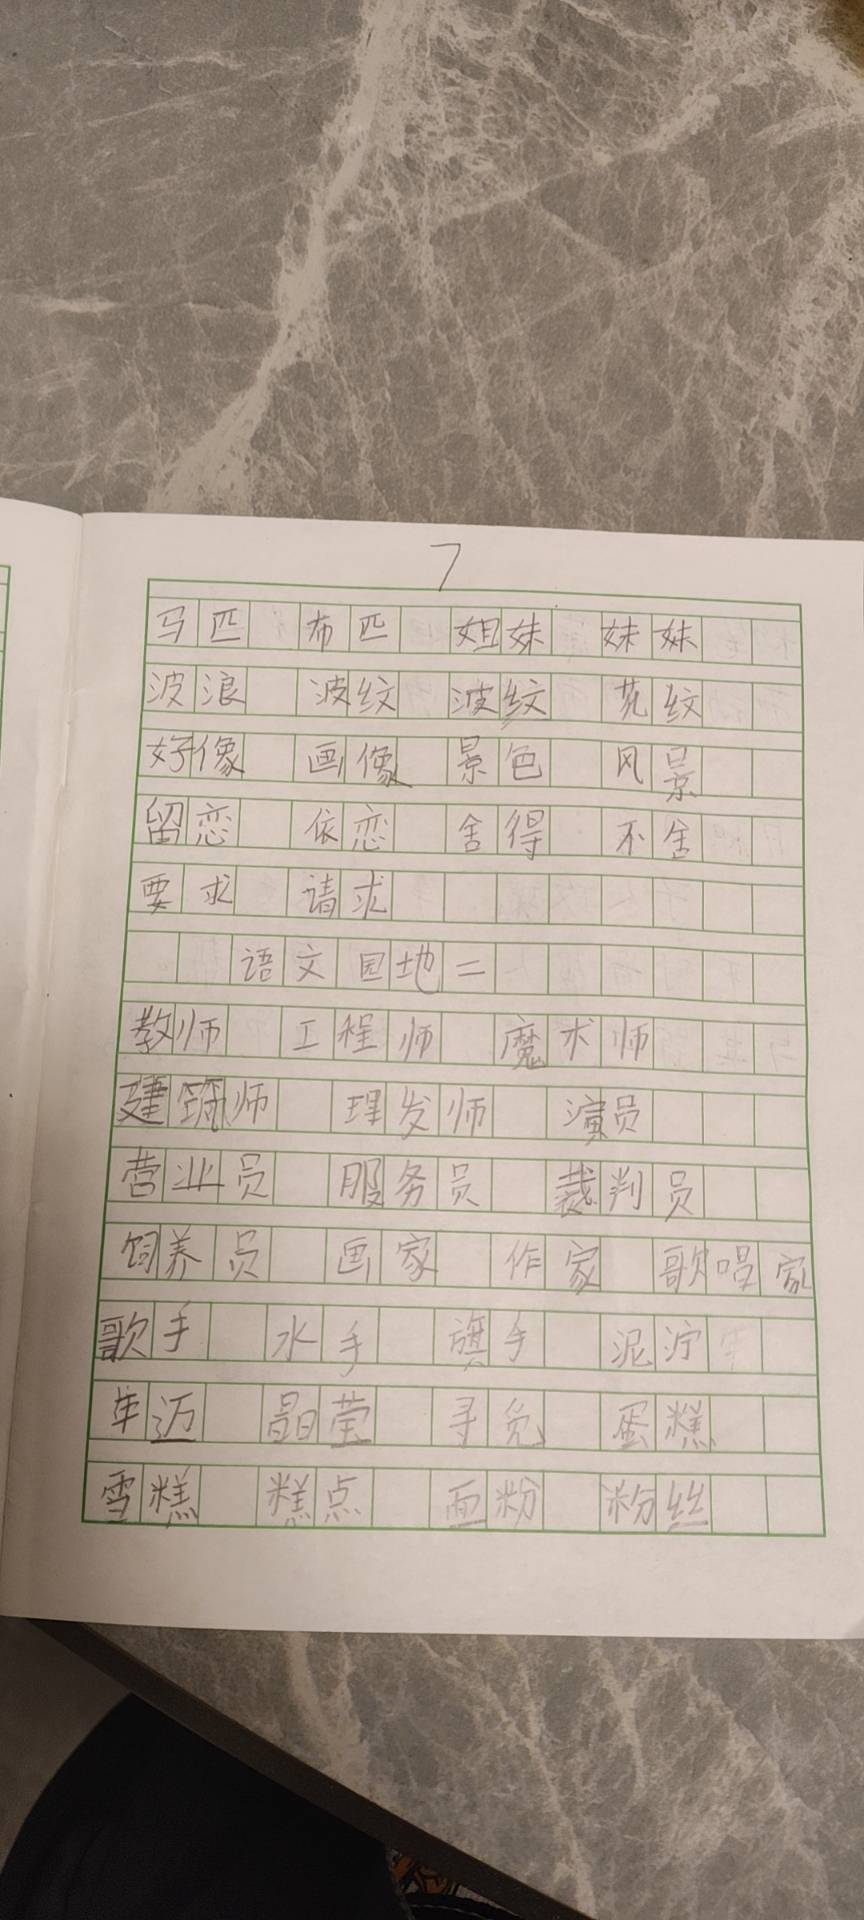 7
马匹 布匹 姐妹 妹妹
波浪 波纹 波纹 花纹
好像 画像 景色 风景
留恋 依恋 舍得 不舍
要求 请求
语文园地二
教师 工程师 魔术师
建筑师 理发师 演员
营业员 服务员 裁判员
饲养员 画家 作家 歌唱家
歌手 水手 旗手 泥泞
年迈 晶莹 寻觅 蛋糕
雪糕 糕点 面粉 粉丝